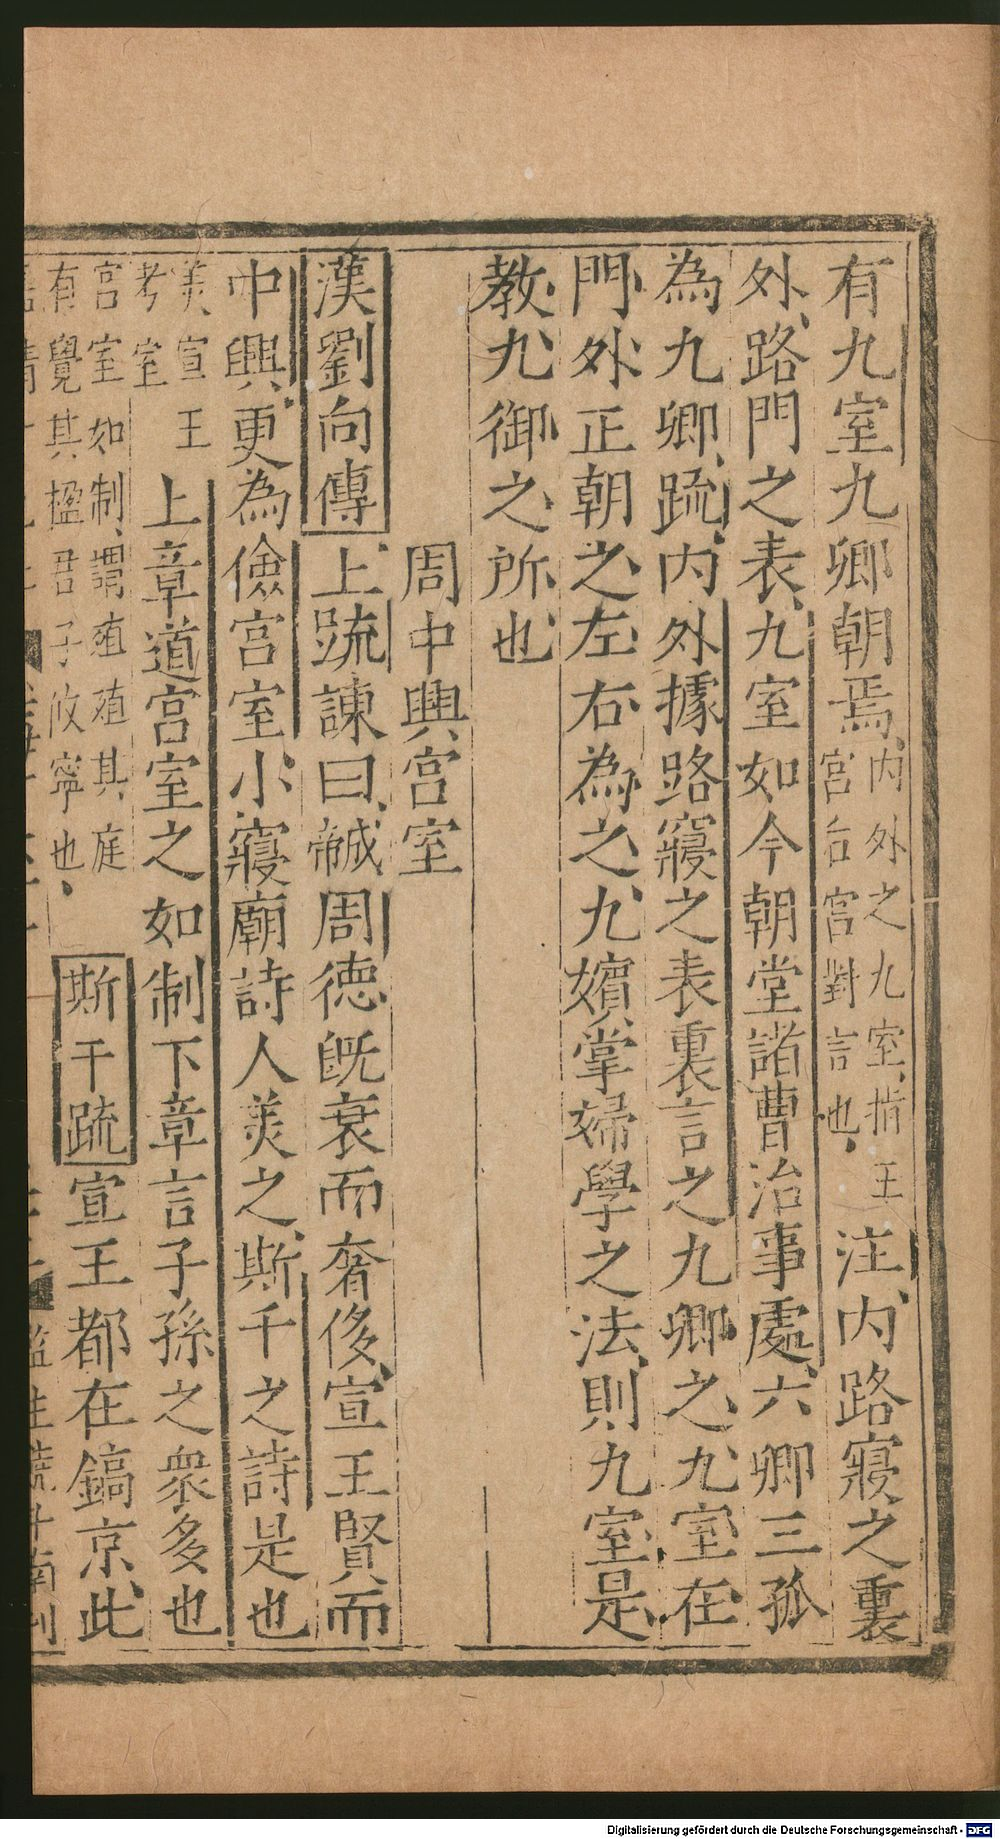 有九室九卿朝焉内外之九室指王宮后宮對言也注内路寢之裏
外路門之表九室如今朝堂諸曹治事處六卿三孤
為九卿疏内外據路寢之表裏言之九卿之九室在
門外正朝之左右為之九嬪掌婦學之法則九室是
教九御之所也
周中興宮室
漢劉向傳上疏諫曰周德既衰而奢侈宣王賢而
中興更為儉宮室小寢廟詩人美之斯干之詩是也
美宣王考室上章道宮室之如制下章言子孫之衆多也
宮室如制謂殖殖其庭有覺其楹君子攸寧也斯干疏宣王都在鎬京此
Digitalisierung gefördert durch die Deutsche Forschungsgemeinschaft - DFG